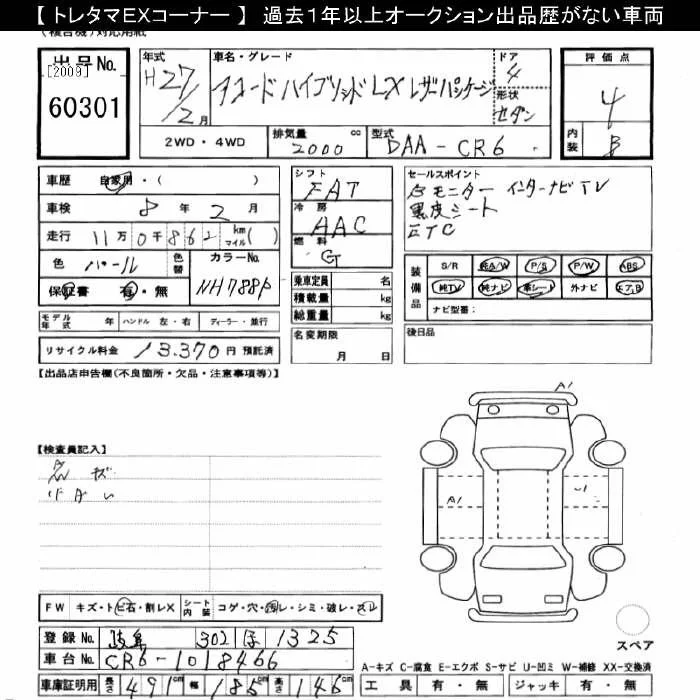 【 トレタマEXコーナー 】 過去1年以上オークション出品歴がない車両
出品No.
[2009]
60301
年式 H27/2月
車名・グレード アコードハイブリッドLX レザーパッケージ
ドア 4
形状 セダン
評価点 4
内装 B
2WD・4WD
排気量 2000 cc
型式 DAA-CR6
車歴 自家用・( )
車検 8年 2月
走行 11万0千862 km マイル( )
色 パール 色替 カラーNo. NH788P
保証書 有・無
シフト FAT
冷房 AAC
燃料 G
乗車定員 名
積載量 kg
総重量 kg
セールスポイント
モニター インターナビ TV
黒皮シート
ETC
装備品 S/R 純A/W P/S P/W ABS
純TV 純ナビ 革シート 外ナビ エアB
ナビ型番:
モデル年式 年 ハンドル 左・右 ディーラー・並行
名変期限 月 日
後日品
リサイクル料金 13.370円 預託済
【出品店申告欄(不良箇所・欠品・注意事項等)】
A1
【検査員記入】
A1
FW キズ・トビ石・割レX シート内装 コゲ・穴・汚レ・シミ・破レ・スレ
登録No. 岐阜 302 ほ 1325
車台No. CR6-1018466
スペア
A-キズ C-腐食 E-エクボ S-サビ U-凹ミ W-補修 XX-交換済
車庫証明用 長さ 491cm 幅 185cm 高さ 146cm
工具 有・無 ジャッキ 有・無